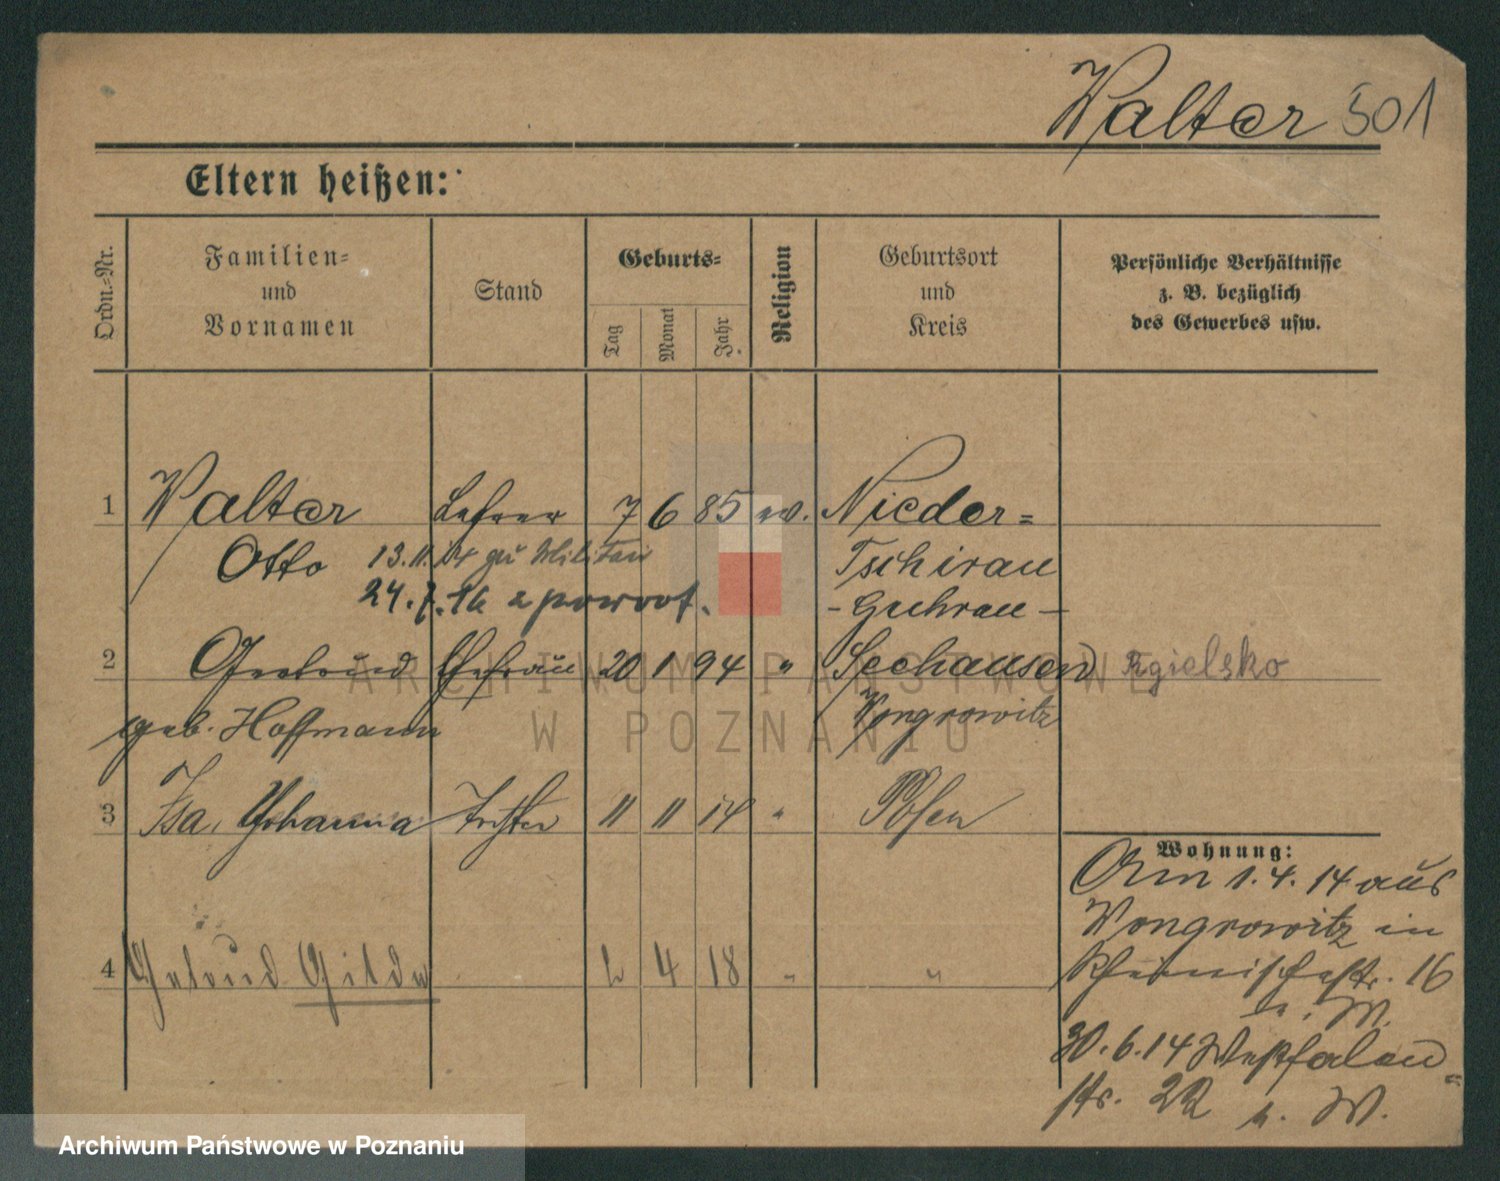 Walter 501
Eltern heißen:
Ordn.-Nr.
Familien-
und
Vornamen
Stand
Geburts-
Tag
Monat
Jahr
Religion
Geburtsort
und
Kreis
Persönliche Verhältnisse
z. B. bezüglich
des Gewerbes usw.
1 Walter Lehrer 7 6 85 ev. Nieder-
Otto 13.11.14 zu Militair Tschirau
24.7.16 - Guhrau -
2 Gertrud Ehefrau 20 1 94 " Seehausen Rgielsko
geb. Hoffmann Wongrowitz
3 Isa, Johanna Tochter 11 11 14 " Posen
Wohnung:
Am 1.4.14 aus
Wongrowitz in
4 Gertrud Gilda 4 18 " "
16
u. W.
30.6.14 Westfalen-
str. 22 u. W.
ARCHIWUM PAŃSTWOWE
W POZNANIU
Archiwum Państwowe w Poznaniu